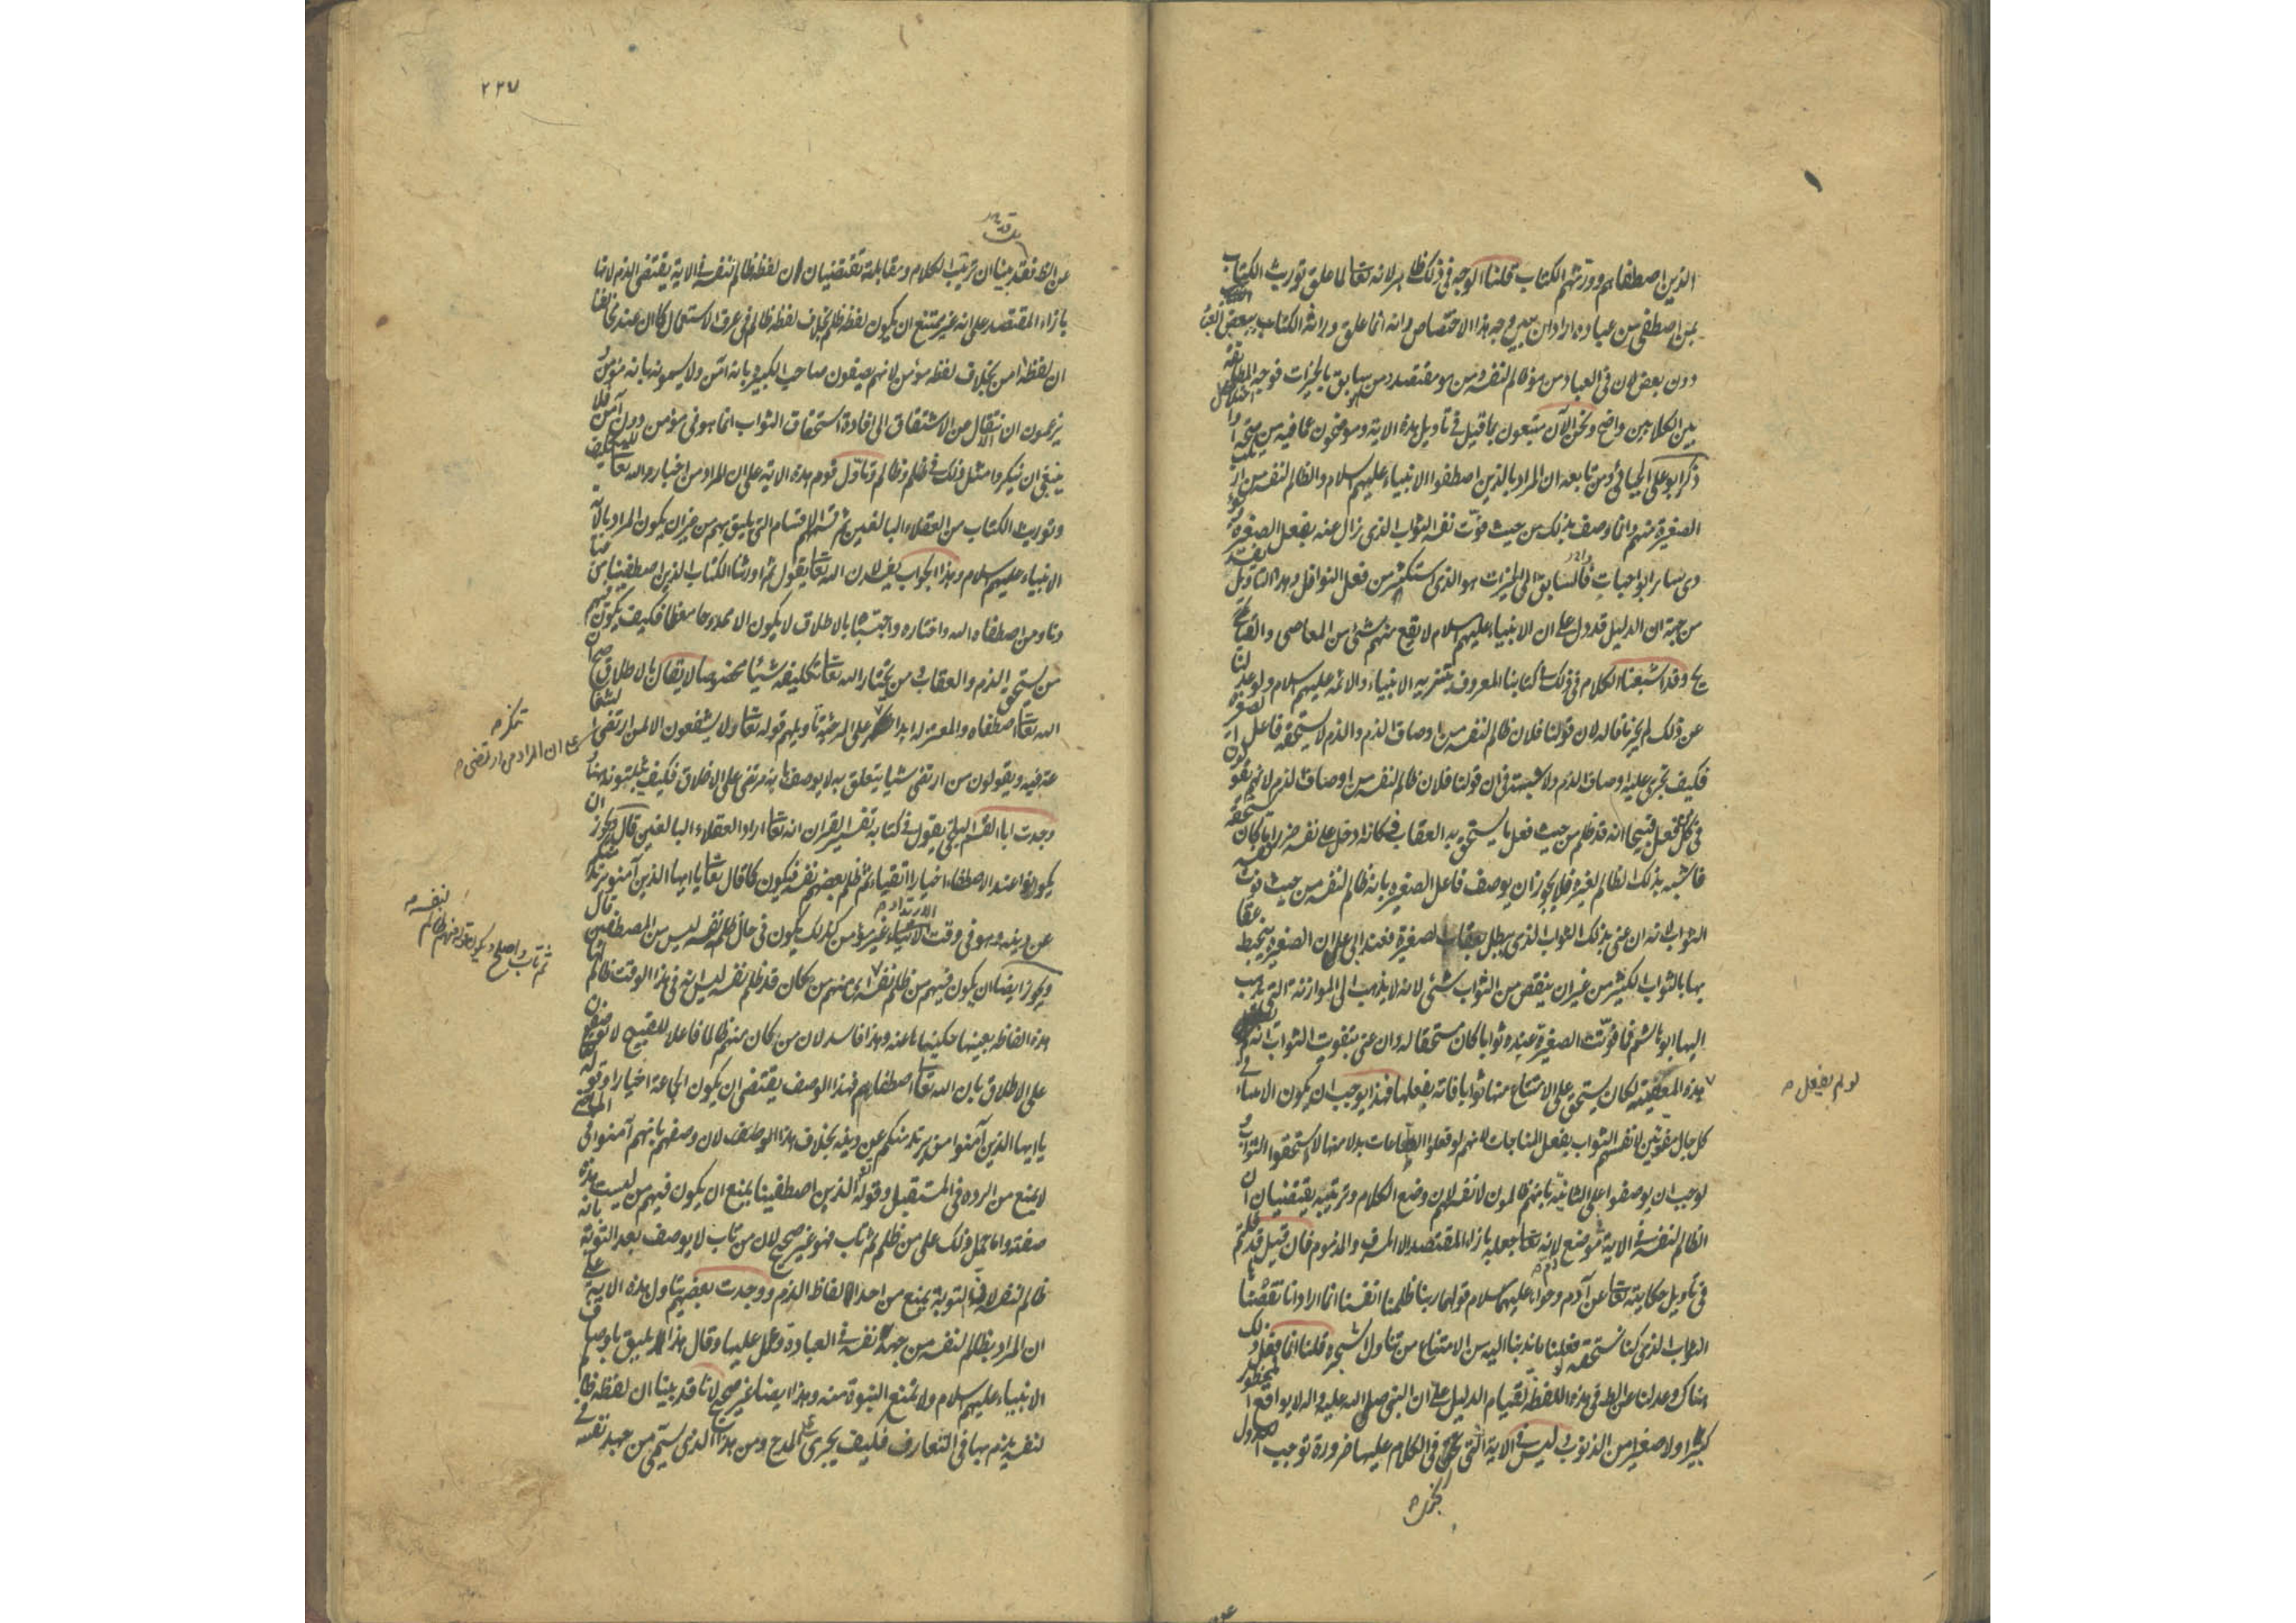 الذين اصطفاهم وورثهم الكتاب قلنا الوجه في ذلك ظاهر لانه تعالى لما علق توريث الكتاب
بمن اصطفى من عباده اراد ان يبين وجه هذا الاختصاص وانه انما علق وراثة الكتاب ببعض العباد
دون بعض لان في العباد من هو ظالم لنفسه ومن هو مقتصد ومن هو سابق بالخيرات فوجه المطابقة
بين الكلامين واضح ونحن الآن متبعون بما قيل في تأويل هذه الاية وموضحون عما فيه من صحة او اختلال
ذكر ابو علي الجبائي ومن تابعه ان المراد بالذين اصطفوا الانبياء عليهم السلام والظالم لنفسه من ارتكب
الصغيرة منهم وانما وصف بذلك من حيث فوّت نفسه الثواب الذي زال عنه بفعل الصغيرة
وسائر الواجبات والسابق الى الخيرات هو الذي استكثر من فعل النوافل وهذا التاويل يفسد
من جهة ان الدليل قد دل على ان الانبياء عليهم السلام لا يقع منهم شئ من المعاصي والقبائح
وقد اشبعنا الكلام في ذلك في كتابنا المعروف بتنزيه الانبياء والائمة عليهم السلام ولو عدلنا
عن ذلك لم يجز ما قاله لان قولنا فلان ظالم لنفسه من اوصاف الذم والذم لا يستحقه فاعل الصغيرة
فكيف تجري عليه اوصاف الذم ولا شبهة في ان قولنا فلان ظالم لنفسه من اوصاف الذم لانهم يقولون
في كل من فعل قبيحا انه قد ظلم من حيث فعل ما يستحق به العقاب فكانه ادخل على نفسه ضررا ما كان يستحقه
فاشبه بذلك الظالم لغيره فلا يجوز ان يوصف فاعل الصغيرة بانه ظالم لنفسه من حيث فوت نفسه
الثواب لانه ان عنى بذلك الثواب الذي يبطل بعقاب الصغيرة فعند ابي علي ان الصغيرة ينحبط عقابها
بها بالثواب الكثير من غير ان ينقص من الثواب شئ لانه لا يذهب الى الموازنة التي يذهب
اليها ابو هاشم فما فوّتت الصغيرة عنده ثوابا كان مستحقا له وان عنى بتفويت الثواب انه
لو لم يفعل
هذه المعصية لكان يستحق على الامتناع منها ثوابا فاته بفعلها فهذا يوجب ان يكون الانبياء في
كل حال مفوتين لانفسهم الثواب بفعل المباحات لانهم لو فعلوا الطاعات بدلا منها لاستحقوا الثواب و
لوجب ان يوصفوا بانهم ظالمون لانفسهم لان وضع الكلام وترتيبه يقتضيان ان
الظالم لنفسه في الاية لانه تعالى جعله بازاء المقتصد الا المسرف والمذموم فان قيل قد قلتم
في تأويل حكايته تعالى عن آدم وحواء عليهما السلام قولهما ربنا ظلمنا انفسنا انما ارادا انا نقصنا
الثواب الذي كنا نستحقه لو فعلنا ما ندبنا اليه من الامتناع من تناول الشجرة قلنا انما فعل ذلك
هناك وعدلنا عن الظاهر في هذه اللفظة لقيام الدليل على ان النبي صلى الله عليه واله لا يواقع المحظور
كبيرا ولا صغيرا من الذنوب وليس في الاية التي نحن في الكلام عليها ضرورة توجب العدول
٢٣٧
عن الظاهر فقد بينا ان ترتيب الكلام ومقابلته تقتضيان ان لفظة ظالم لنفسه في الاية يقتضي الذم لانها
بازاء المقتصد على انه غير ممتنع ان يكون لفظ ظلم بخلاف لفظة ظالم في عرف الاستعمال كما ان عند مخالفنا
ان لفظة امن بخلاف لفظ مؤمن لانهم يصفون صاحب الكبيرة بانه امن ولا يسمونه بانه مؤمن و
يزعمون ان انتقال عن الاشتقاق الى افادة استحقاق الثواب انما هو في مؤمن دون آمن فلا
ينبغي ان ينكروا مثل ذلك في ظلم وظالم وتأول قوم هذه الاية على ان المراد من اختاره الله تعالى للتكليف
وتوريث الكتاب من العقلاء البالغين ثم قسمهم الاقسام التي يليق بهم من غير ان يكون المراد بالاية
الانبياء عليهم السلام وهذا الجواب يفسد لان الله تعالى يقول ثم اورثنا الكتاب الذين اصطفينا من عبادنا
ومن اصطفاه الله واختاره واجتباه بالاطلاق لا يكون الا ممدوحا معظما فكيف يكون فيهم
من يستحق الذم والعقاب ومن يختار الله تعالى تكليفه شيئا مخصوصا لا يقال بالاطلاق ان
الله تعالى اصطفاه والمعتزلة ابدا تنكر على المرجئة تاويلهم قوله تعالى ولا يشفعون الا لمن ارتضى
على ان المراد من ارتضى
فيه ويقولون من ارتضى شيئا يتعلق به لا يوصف بانه مرتضى على الاطلاق فكيف
وجدت ابا القاسم البلخي يقول في كتابه تفسير القران انه تعالى اراد العقلاء البالغين قال ويجوز ان
يكونوا عند الاصطفاء اخيارا اتقياء ثم ظلم بعضهم نفسه فيكون كما قال تعالى يا ايها الذين آمنوا من يرتد منكم
عن دينه وهو في وقت الارتداد غير مؤمن كذلك يكون في حال ظلمه نفسه ليس من المصطفين قال
ويجوز ايضا ان يكون فمنهم من ظلم نفسه اي منهم من كان قد ظلم نفسه ليس انه في هذا الوقت ظالم
لنفسه
ثم تاب واصلح ويكون قوله فمنهم ظالم
هذه الفاظه بعينها حكيناها عنه وهذا فاسد لان من كان منهم ظالما فاعلا للقبيح لا يوصف
على الاطلاق بان الله تعالى اصطفاهم فهذا الوصف يقتضي ان يكون الجماعة اخيارا وقوله
يا ايها الذين آمنوا من يرتد منكم عن دينه بخلاف هذا الوصف لان وصفهم بانهم آمنوا في الماضي
لا يمنع من الردة في المستقبل وقوله الذين اصطفينا يمنع ان يكون فيهم من ليست هذه
صفته واما حمل ذلك على من ظلم ثم تاب فهو غير صحيح لان من تاب لا يوصف بعد التوبة بانه
ظالم لنفسه لان التوبة يمنع من اجراء الفاظ الذم ووجدت بعضهم يتاول هذه الاية على
ان المراد بظالم لنفسه من جهد نفسه في العبادة وحمل عليها وقال هذا يليق باوصاف
الانبياء عليهم السلام ولا تمنع النبوة منه وهذا ايضا غير صحيح لانا قد بينا ان لفظة ظالم
لنفسه يذم بها في التعارف فكيف يجري على المدح ومن هذا الذي سمي من جهد نفسه في